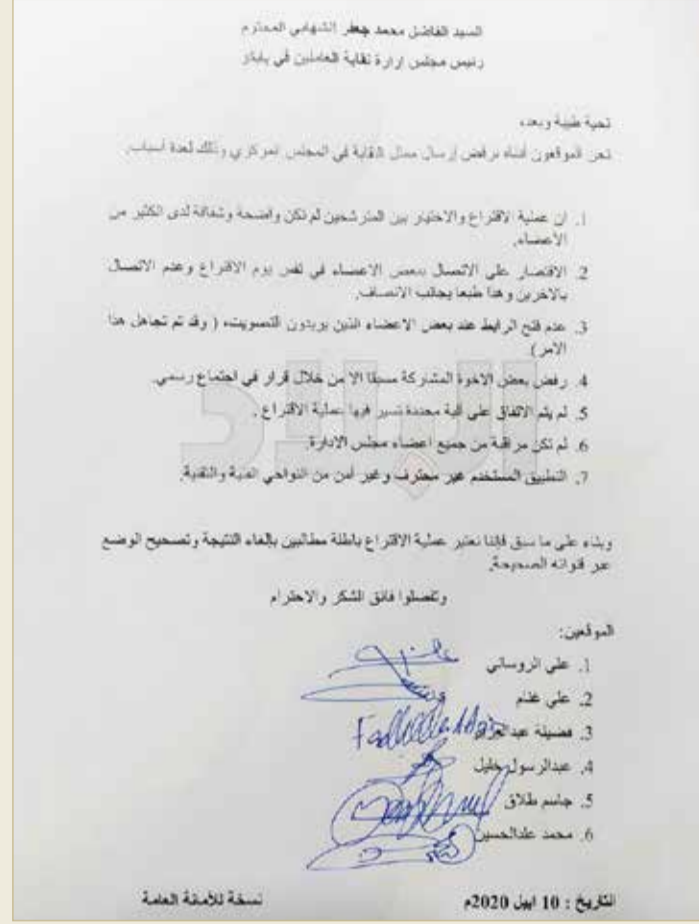 السيد الفاضل محمد جعفر الشهابي المحترم
رئيس مجلس إرارة نقابة العاملين في بابكو
تحية طيبة وبعد،
نحن الموقعون أدناه نرفض إرسال ممثل النقابة في المجلس المركزي وذلك لعدة أسباب.
1. ان عملية الاقتراع والاختيار بين المترشحين لم تكن واضحة وشفافة لدى الكثير من
الأعضاء.
2. الاقتصار على الاتصال ببعض الاعضاء في نفس يوم الاقتراع وعدم الاتصال
بالاخرين وهذا طبعا يجانب الانصاف.
3. عدم فتح الرابط عند بعض الاعضاء الذين يريدون التصويت، ( وقد تم تجاهل هذا
الامر).
4. رفض بعض الاخوة المشاركة مسبقا الا من خلال قرار في اجتماع رسمي.
5. لم يتم الاتفاق على آلية محددة تسير فيها عملية الاقتراع .
6. لم تكن مراقبة من جميع اعضاء مجلس الادارة.
7. التطبيق المستخدم غير محترف وغير آمن من النواحي الفنية والتقنية.
البلاد
وبناء على ما سبق فإننا نعتبر عملية الاقتراع باطلة مطالبين بإلغاء النتيجة وتصحيح الوضع
عبر قنواته الصحيحة.
وتفضلوا فائق الشكر والاحترام
الموقعين:
1. علي الروساني
2. علي غنام
3. فضيلة
4. عبدالرسول خليل
5. جاسم طلاق
6. محمد عبدالحسين
التاريخ : 10 ابيل 2020م
نسخة للأمانة العامة